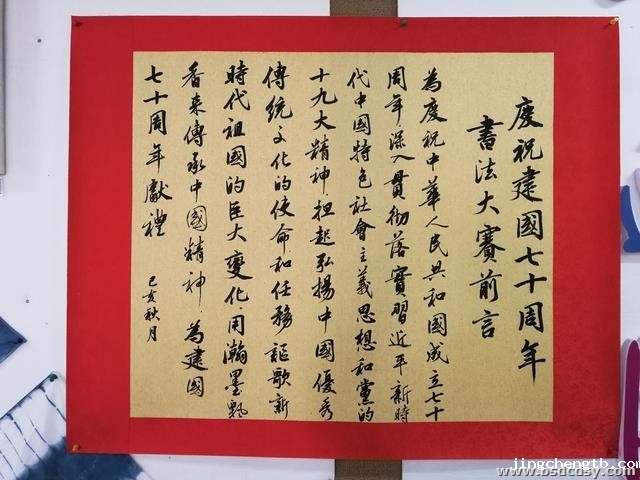 慶祝建國七十周年
書法大賽前言
為慶祝中華人民共和國成立七十
周年,深入貫彻落實習近平新時
代中國特色社會主義思想和黨的
十九大精神担起弘揚中國優秀
傳統文化的使命和任務謳歌新
時代祖國的巨大變化,用瀚墨飄
香来傳承中國精神,為建國
七十周年獻禮
己亥秋月
www.bsdcdsy.com
jingchengtb.com